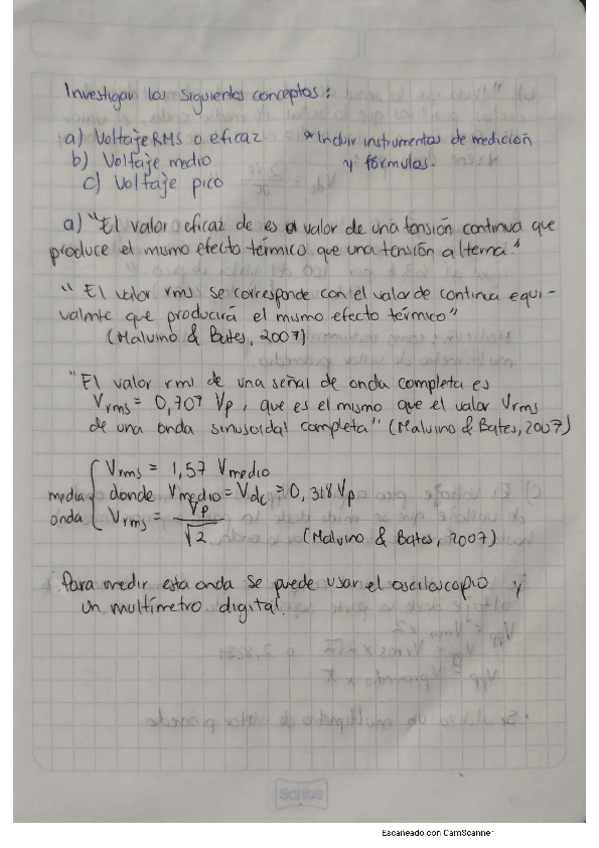 Investigar los siguientes conceptos:
a) Voltaje RMS o eficaz *Incluir instrumentos de medición
b) Voltaje medio y fórmulas.
c) Voltaje pico
a) "El valor eficaz de es el valor de una tensión continua que
produce el mismo efecto térmico que una tensión alterna."
" El valor rms se corresponde con el valor de continua equi-
valente que producirá el mismo efecto térmico"
(Malvino & Bates, 2007)
"El valor rms de una señal de onda completa es
Vrms = 0,707 Vp, que es el mismo que el valor Vrms
de una onda sinusoidal completa" (Malvino & Bates, 2007)
media onda { Vrms = 1,57 Vmedio
donde Vmedio = Vdc = 0,318 Vp
Vrms = Vp / √2 (Malvino & Bates, 2007)
Para medir esta onda se puede usar el osciloscopio y
un multímetro digital.
Scribe
Escaneado con CamScanner